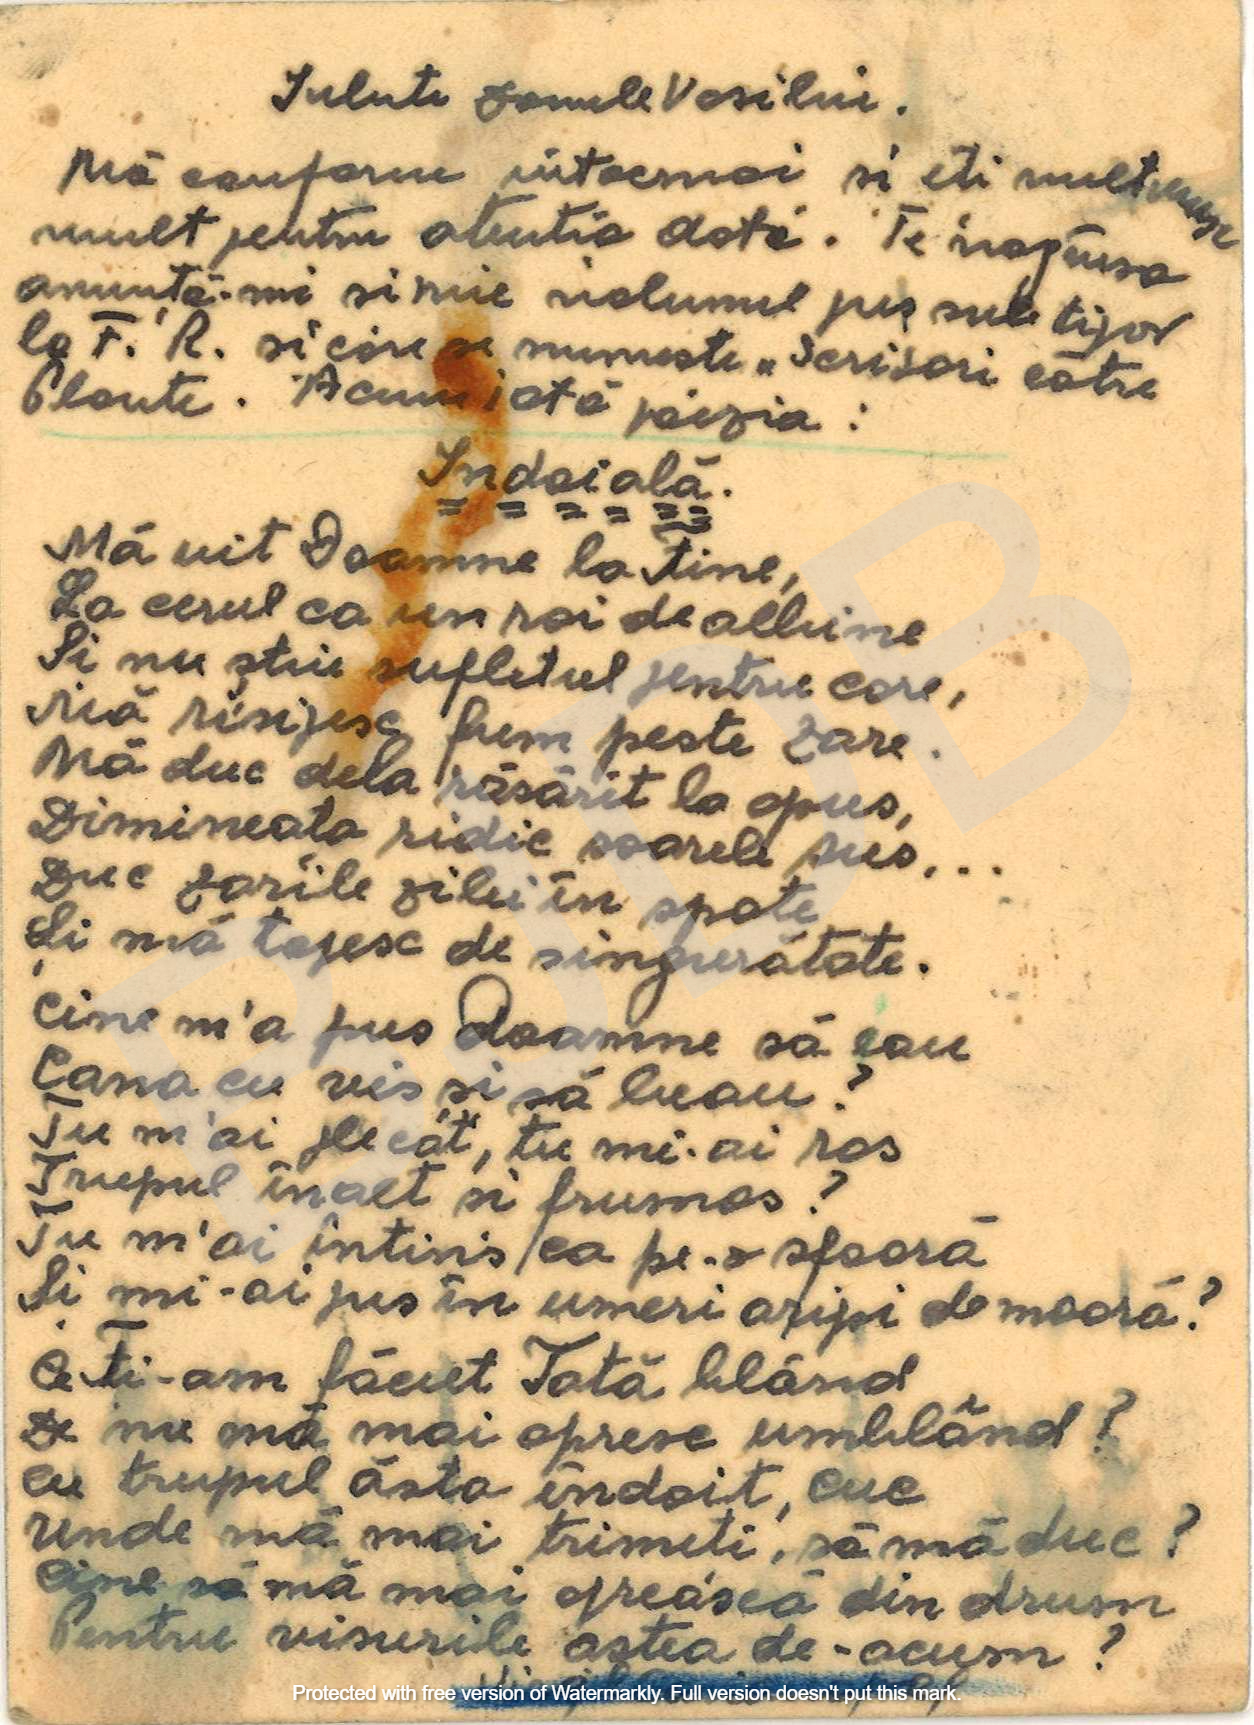 Iubite domule Vasiliu.
Mă conform întocmai și îți mulțumesc
mult pentru atenția dată. Te rog însă
anunță-mi și mie volumul pus sub tipar
la F. R. și care se numește „Scrisori către
Plante. Acum iată poezia:
Indoială.
Mă uit Doamne la tine,
La cerul ca un roi de albine
Și nu știu sufletul pentru care,
Mă risipesc fum peste zare.
Mă duc dela răsărit la apus,
Dimineata ridic soarele sus,...
Duc zările zilei în spate
Și mă topesc de singurătate.
Cine m'a pus Doamne să eau
Cana cu vis și să beau?
Tu m'ai plecat, tu mi-ai ros
Trupul înalt si frumos?
Tu m'ai întins ca pe-o sfoară
Și mi-ai pus în umeri aripi de moară?
Ce Ți-am făcut Tată blând
De nu mă mai opresc umblând?
Cu trupul ăsta îndoit, cuc
Unde mă mai trimeti, să mă duc?
Cine să mă mai oprească din drum
Pentru visurile astea de-acum?
Protected with free version of Watermarkly. Full version doesn't put this mark.